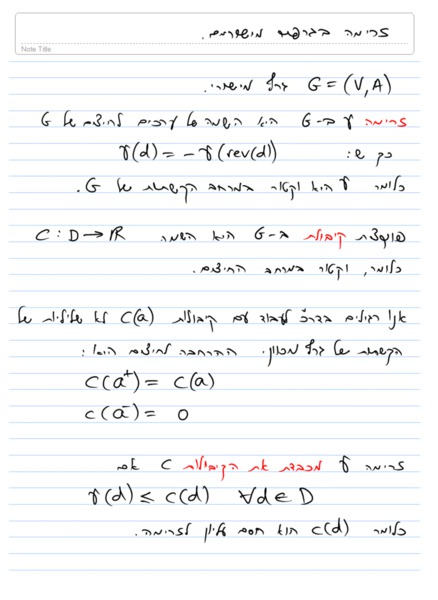 זרימה בגרפים מישוריים.
Note Title
G = (V,A) גרף מישורי.
זרימה γ ב-G היא השמה של ערכים לחיצים של G
כך ש: γ(d) = −γ(rev(d))
כלומר γ היא וקטור במרחב הקשתות של G.
פונקצית קיבולת ב-G היא השמה C : D → ℝ
כלומר, וקטור במרחב החיצים.
אנו רגילים בדר"כ לעבוד עם קיבולות C(a) לא שליליות של
הקשתות של גרף מכוון. ההרחבה לחיצים היא:
C(a⁺) = C(a)
C(a⁻) = 0
זרימה γ מכבדת את הקיבולות C אם
γ(d) ≤ C(d) ∀d ∈ D
כלומר C(d) הוא חסם עליון לזרימה.